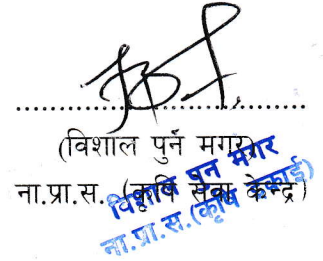 (विशाल पुर्न मगर)
ना.प्रा.स. (कृषि सेवा केन्द्र)
विशाल पुन मगर
ना.प्रा.स.(कृषि इकाई)